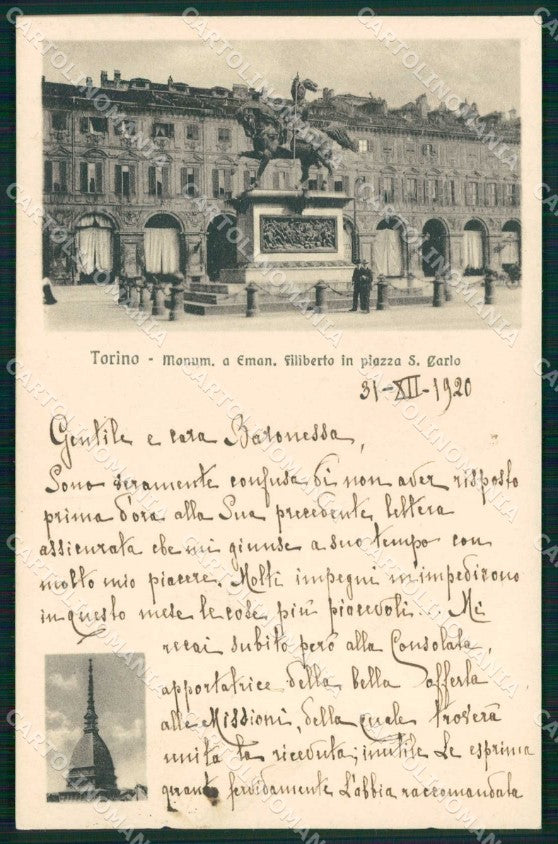 Torino - Monum. a Eman. Filiberto in piazza S. Carlo
31-XII-1920
Gentile e cara Baronessa,
Sono veramente confusa di non aver risposto
prima d'ora alla Sua precedente lettera
assicurata che mi giunse a suo tempo con
molto mio piacere. Molti impegni m'impedirono
in questo mese le cose più piacevoli... Mi
recai subito però alla Consolata,
apportatrice della bella offerta
alle Missioni, della quale troverà
unita la ricevuta; inutile Le esprima
quanto fervidamente L'abbia raccomandata
CARTOLINOMANIA